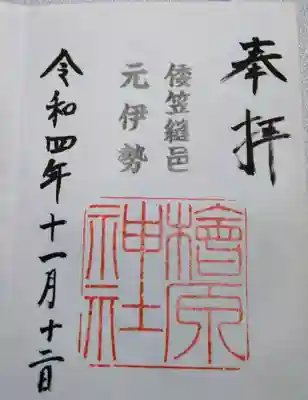 奉拝
倭笠縫邑
元伊勢
檜原神社
令和四年十一月十二日